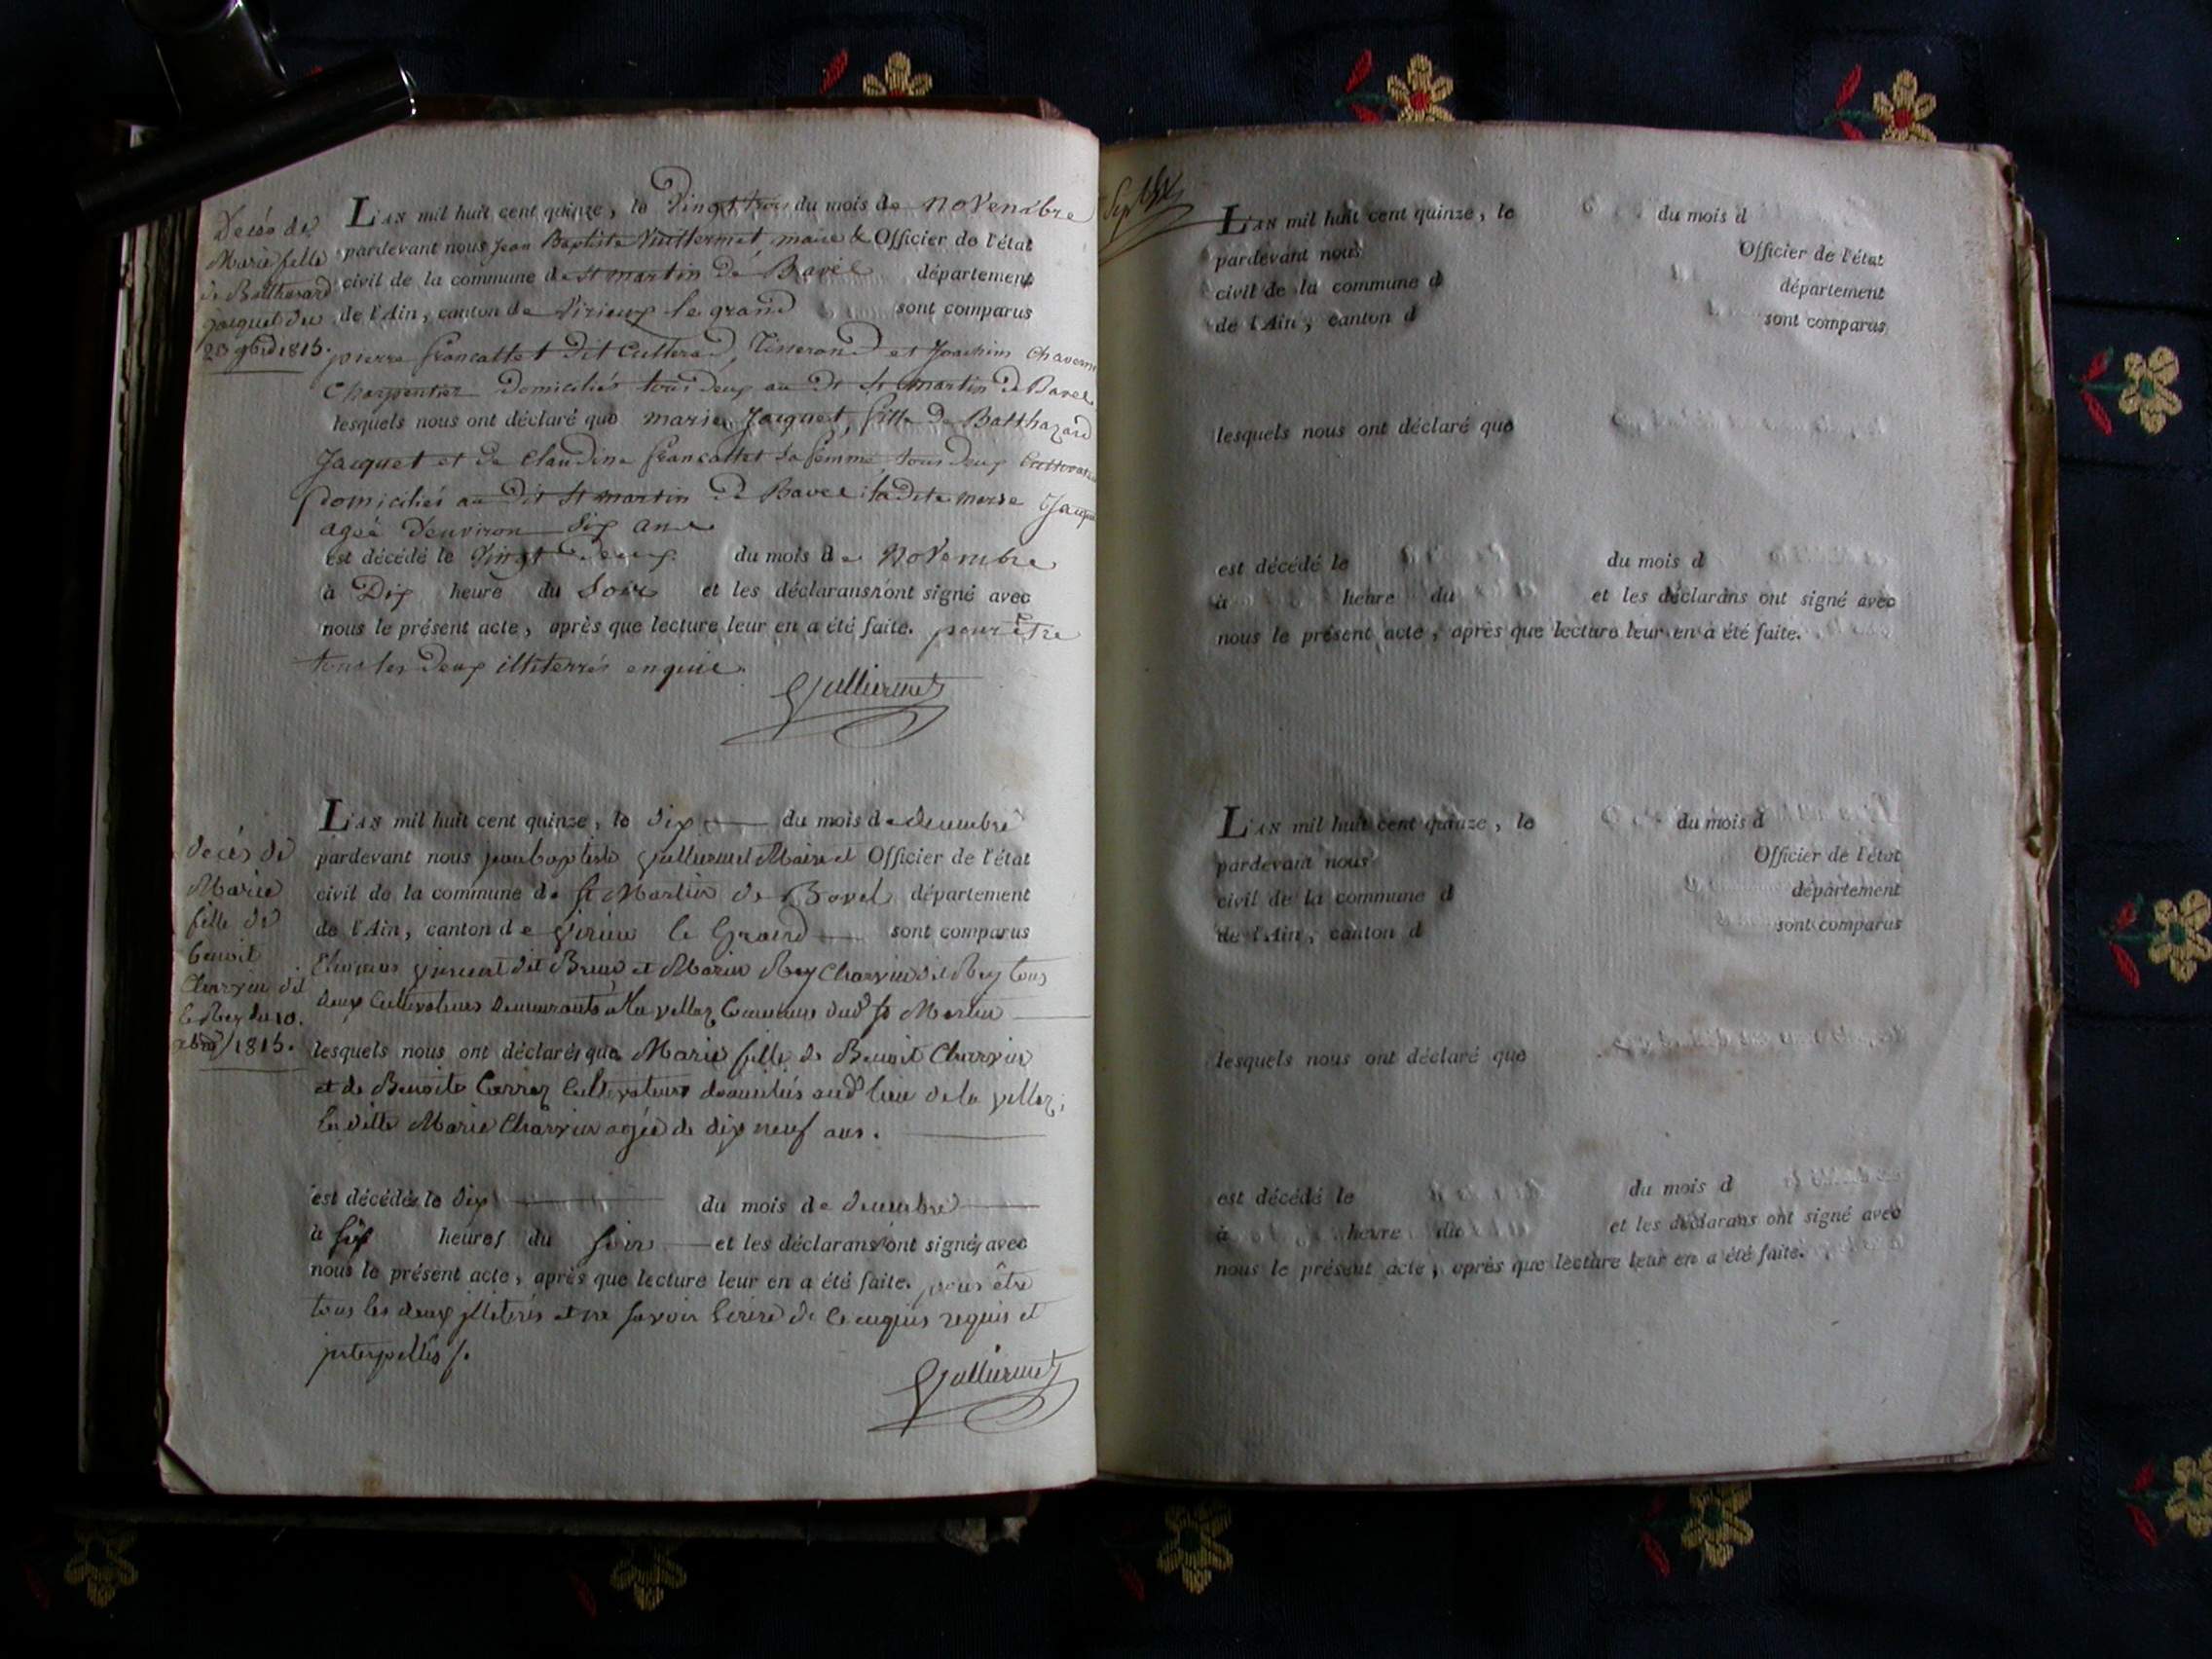 Décès de
Marie fille
de Balthazard
Jacquet du
23 9bre 1815.
L'AN mil huit cent quinze, le Vingt trois du mois de novembre
pardevant nous jean Baptiste Vuillermet, maire & Officier de l'état
civil de la commune de St martin de Bavel département
de l'Ain, canton de Virieux le grand sont comparus
pierre francallet dit Culterad, Tisserand et Joachim
Charpentier Domiciliés tous deux au dt St martin de Bavel
lesquels nous ont déclaré que marie Jacquet, fille de Balthazard
Jacquet et de Claudine francallet sa femme, tous deux
domiciliés au dit St martin de Bavel; la dite marie Jacquet
agée d'environ dix ans
est décédé le Vingt deux du mois de Novembre
à Dix heure du Soir et les déclarans n'ont signé avec
nous le présent acte, après que lecture leur en a été faite. pour être
tous les deux illiterrés enquis.
Vuillermet
décès de
Marie
fille de
benoit
Charvin dit
le Rey du 10.
xbre 1815.
L'AN mil huit cent quinze, le dix du mois de decembre
pardevant nous jean baptiste Vuillermet Maire et Officier de l'état
civil de la commune de St Martin de Bavel département
de l'Ain, canton de Virieu le Grand sont comparus
vincent dit Brun et Marin Rey Charvin dit Rey tous
deux Cultivateurs demeurants à la vellaz Commune dud St Martin
lesquels nous ont déclarés que Marie fille de Benoit Charvin
et de Benoite Carrier Cultivateurs domiciliés aud lieu de la vellaz;
la ditte Marie Charvin agée de dix neuf ans.
est décédée le dix du mois de decembre
à six heures du soir et les déclarans n'ont signés avec
nous le présent acte, après que lecture leur en a été faite. pour être
tous les deux illiterés et ne savoir Ecrire de ce enquis requis et
interpellés /.
Vuillermet
L'AN mil huit cent quinze, le du mois d
pardevant nous Officier de l'état
civil de la commune d département
de l'Ain, canton d sont comparus
lesquels nous ont déclaré que
est décédé le du mois d
à heure du et les déclarans ont signé avec
nous le présent acte, après que lecture leur en a été faite.
L'AN mil huit cent quinze, le du mois d
pardevant nous Officier de l'état
civil de la commune d département
de l'Ain, canton d sont comparus
lesquels nous ont déclaré que
est décédé le du mois d
à heure du et les déclarans ont signé avec
nous le présent acte, après que lecture leur en a été faite.